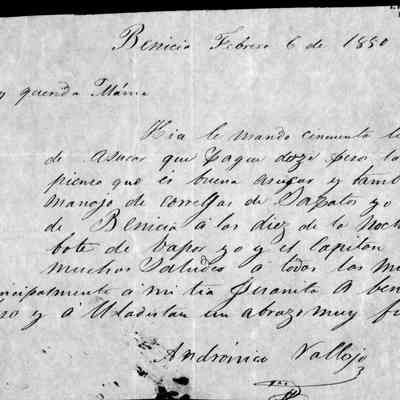 Benicia Febrero 6 de 1850
y querida Máma
Hia le mando cincuenta li
de asucar que pague doze peso la
pienso que es buena asucar y tamb
manojo de correjas de Sapatos yo
de Benicia á los diez de la noch
bote de vapor yo y el Capitan
muchos Saludes a todos los mu
ncipalmente a mi tia A ben
ro y á Uladislau un abrazo muy fu
Andrónico Vallejo